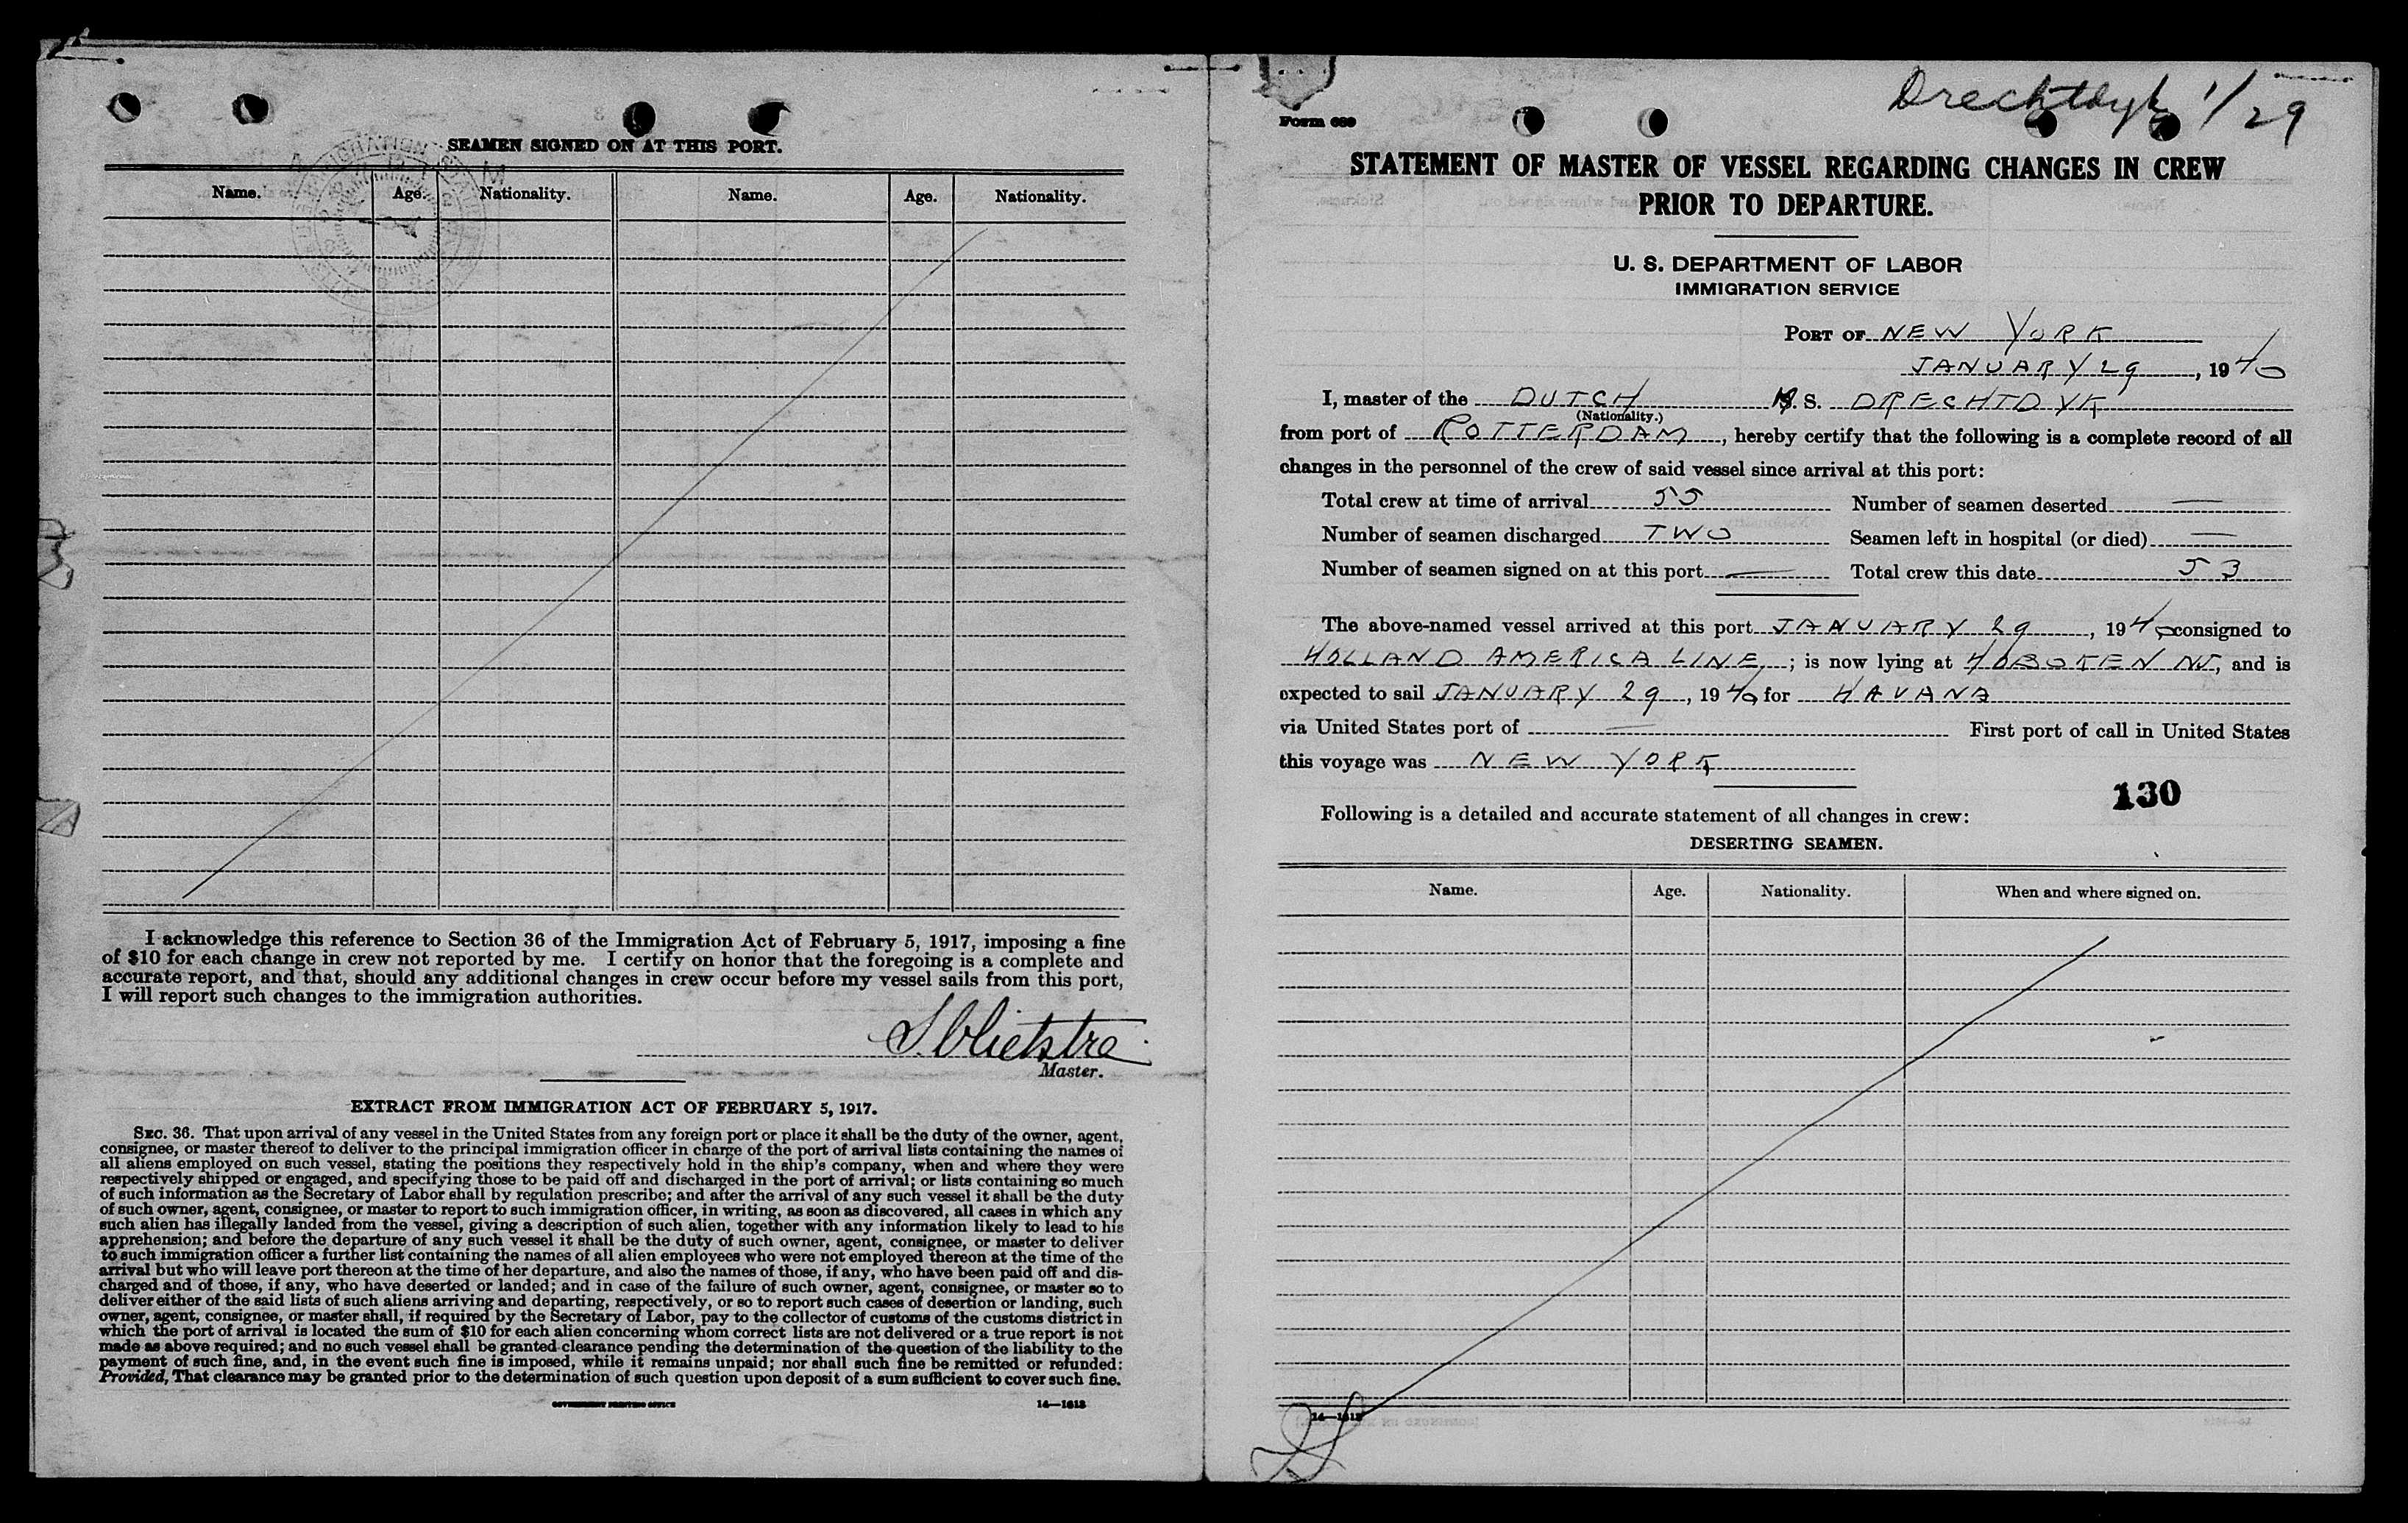 SEAMEN SIGNED ON AT THIS PORT.
Name. Age. Nationality. Name. Age. Nationality.
I acknowledge this reference to Section 36 of the Immigration Act of February 5, 1917, imposing a fine
of $10 for each change in crew not reported by me. I certify on honor that the foregoing is a complete and
accurate report, and that, should any additional changes in crew occur before my vessel sails from this port,
I will report such changes to the immigration authorities.
Master.
EXTRACT FROM IMMIGRATION ACT OF FEBRUARY 5, 1917.
SEC. 36. That upon arrival of any vessel in the United States from any foreign port or place it shall be the duty of the owner, agent,
consignee, or master thereof to deliver to the principal immigration officer in charge of the port of arrival lists containing the names of
all aliens employed on such vessel, stating the positions they respectively hold in the ship's company, when and where they were
respectively shipped or engaged, and specifying those to be paid off and discharged in the port of arrival; or lists containing so much
of such information as the Secretary of Labor shall by regulation prescribe; and after the arrival of any such vessel it shall be the duty
of such owner, agent, consignee, or master to report to such immigration officer, in writing, as soon as discovered, all cases in which any
such alien has illegally landed from the vessel, giving a description of such alien, together with any information likely to lead to his
apprehension; and before the departure of any such vessel it shall be the duty of such owner, agent, consignee, or master to deliver
to such immigration officer a further list containing the names of all alien employees who were not employed thereon at the time of the
arrival but who will leave port thereon at the time of her departure, and also the names of those, if any, who have been paid off and dis-
charged and of those, if any, who have deserted or landed; and in case of the failure of such owner, agent, consignee, or master so to
deliver either of the said lists of such aliens arriving and departing, respectively, or so to report such cases of desertion or landing, such
owner, agent, consignee, or master shall, if required by the Secretary of Labor, pay to the collector of customs of the customs district in
which the port of arrival is located the sum of $10 for each alien concerning whom correct lists are not delivered or a true report is not
made as above required; and no such vessel shall be granted clearance pending the determination of the question of the liability to the
payment of such fine, and, in the event such fine is imposed, while it remains unpaid; nor shall such fine be remitted or refunded:
Provided, That clearance may be granted prior to the determination of such question upon deposit of a sum sufficient to cover such fine.
GOVERNMENT PRINTING OFFICE 14—1613
Drechtdyk 1/29
Form 689
STATEMENT OF MASTER OF VESSEL REGARDING CHANGES IN CREW
PRIOR TO DEPARTURE.
U. S. DEPARTMENT OF LABOR
IMMIGRATION SERVICE
PORT OF NEW YORK
JANUARY 29, 1940
I, master of the DUTCH M.S. DRECHTDYK
(Nationality.)
from port of ROTTERDAM, hereby certify that the following is a complete record of all
changes in the personnel of the crew of said vessel since arrival at this port:
Total crew at time of arrival 55 Number of seamen deserted —
Number of seamen discharged TWO Seamen left in hospital (or died) —
Number of seamen signed on at this port — Total crew this date 53
The above-named vessel arrived at this port JANUARY 29, 1940 consigned to
HOLLAND AMERICA LINE; is now lying at HOBOKEN NJ, and is
expected to sail JANUARY 29, 1940, for HAVANA
via United States port of — First port of call in United States
this voyage was NEW YORK
130
Following is a detailed and accurate statement of all changes in crew:
DESERTING SEAMEN.
Name. Age. Nationality. When and where signed on.
14—1613